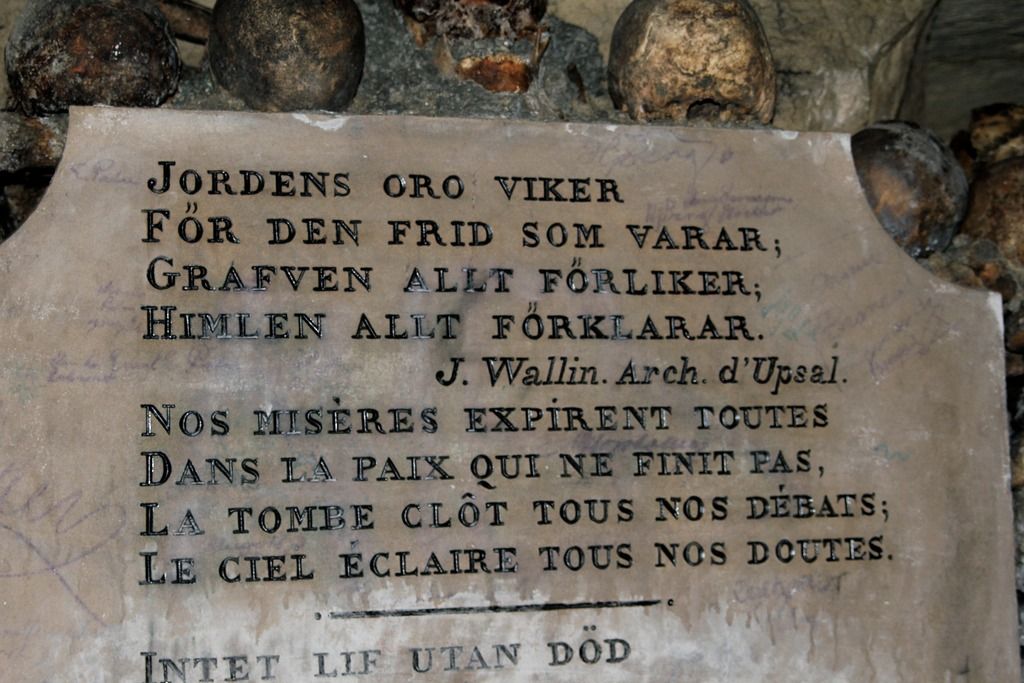 JORDENS ORO VIKER
FŐR DEN FRID SOM VARAR;
GRAFVEN ALLT FŐRLIKER;
HIMLEN ALLT FŐRKLARAR.
J. Wallin. Arch. d'Upsal.
NOS MISÈRES EXPIRENT TOUTES
DANS LA PAIX QUI NE FINIT PAS,
LA TOMBE CLÔT TOUS NOS DÉBATS;
LE CIEL ÉCLAIRE TOUS NOS DOUTES.
INTET LIF UTAN DÖD